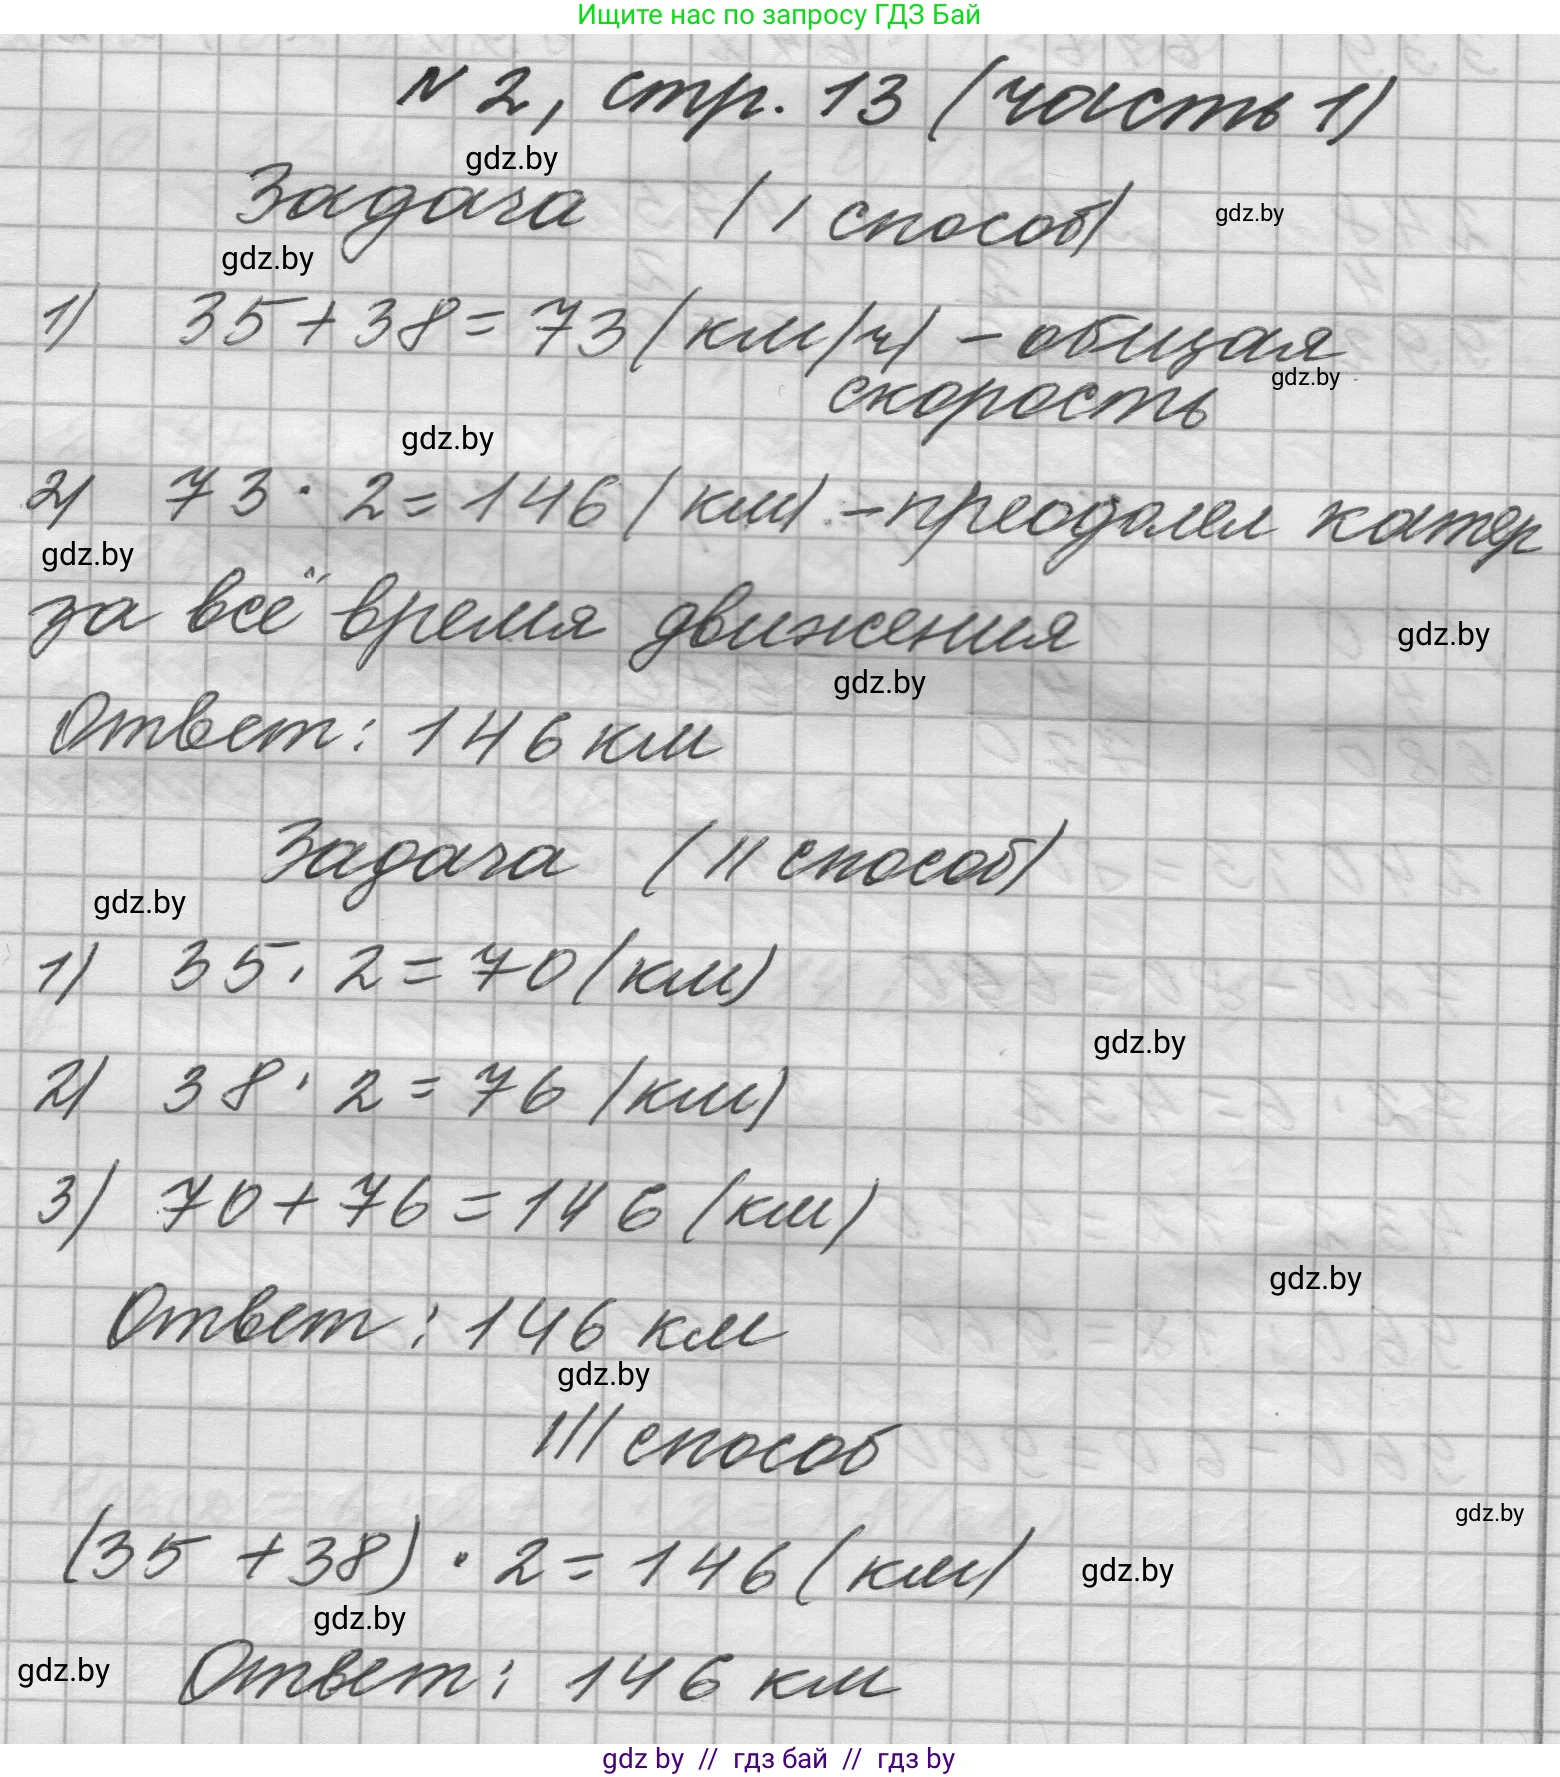 Ищите нас по запросу ГДЗ Бай
N 2, стр. 13 (часть 1)
gdz.by
Задача (I способ)
gdz.by
gdz.by
1) 35+38=73(км/ч) - общая
gdz.by
скорость
gdz.by
2) 73·2=146(км) - преодолел катер
gdz.by
за всё время движения
gdz.by
gdz.by
Ответ: 146 км
Задача (II способ)
gdz.by
1) 35·2=70(км)
gdz.by
2) 38·2=76(км)
3) 70+76=146(км)
gdz.by
Ответ: 146 км
gdz.by
III способ
gdz.by
(35+38)·2=146(км)
gdz.by
gdz.by
gdz.by
Ответ: 146 км
gdz by // гдз бай // гдз by